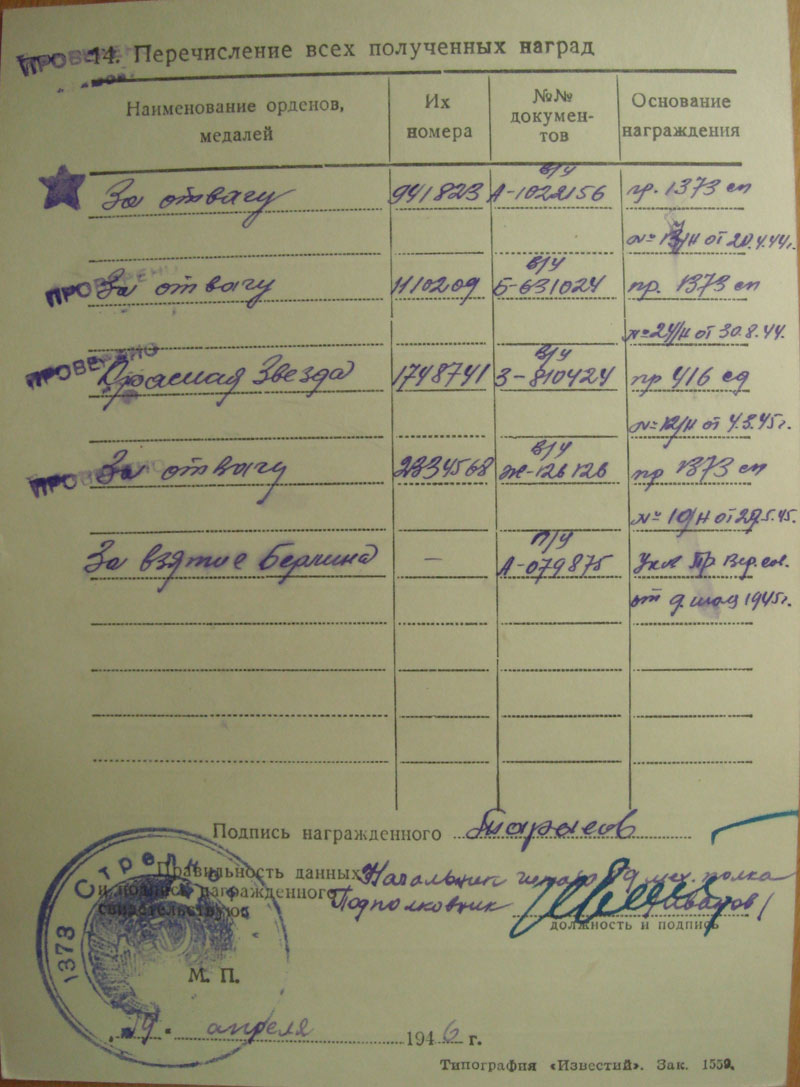 ПРОВЕРЕНО
14. Перечисление всех полученных наград
Наименование орденов, медалей
Их номера
№№ докумен-тов
Основание награждения
За отвагу 941823 в/у А-1022156 пр. 1373 сп
от 20.4.44г.
ПРОВЕРЕНО
За отвагу 1110209 в/у Б-631024 пр. 1373 сп
№ 24/н от 30.8.44.
ПРОВЕРЕНО
Красная Звезда 1748741 в/у З-810424 пр 416 сд
№ 12/н от 4.3.45г.
ПРОВЕРЕНО
За отвагу 2334568 в/у Ж-126126 пр 1373 сп
№ 10/н от 29.5.45.
За взятие Берлина — п/у А-079875 Указ Пр Вер. сов.
от 9 1945г.
Подпись награжденного Тарасов
Правильность данных Начальник штаба мех. полка
и подпись награжденного Подполковник
свидетельствую
должность и подпись
1373 Стрелков
М. П.
„19“ апреля 1946 г.
Типография «Известий». Зак. 1559.